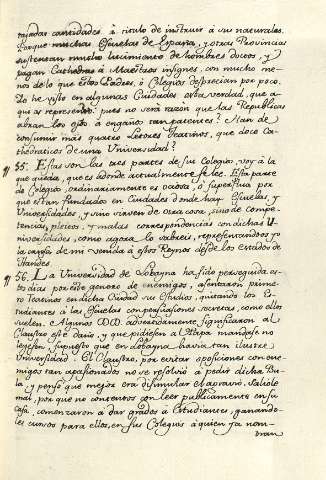 tajadas cantidades à titulo de instruir a sus naturales.
Porque muchas Escuelas de España, y otras Provincias
sustentan mucho lucimiento de hombres doctos, y
pagan Cathedras à Maestros insignes, con mucho me-
nos de lo que estos Padres, ò Colegios desprecian por poco.
Yo he visto en algunas Ciudades esta verdad, que a-
qui os represento. pues no será razon que las Republicas
abran los ojos à engaño tan patente? Han de
consumir mas quatro Letores Teatinos, que doce Ca-
thedraticos de una Universidad?
55. Estas son las tres partes de su Colegio, voy à la
que queda, que es donde actualmente se lee. Esta parte
de Colegio, ordinariamente es ociosa, ò superflua por
que estan fundados en Ciudades donde hay Escuelas, y
Universidades, y sino sirven de otra cosa, sino de compe-
tencias, pleitos, y malas correspondencias con dichas U-
niversidades, como agora lo vabreis, representandoos yo
la causa de mi venida à estos Reynos desde los estados de
Flandes.
56. La Universidad de Lobayna ha sido perseguida es-
tos dias por este genero de enemigos, asentaron prime-
ro Teatinos en dicha Ciudad su Estudio, quitando los Es-
tudiantes à las Escuelas con persuasiones secretas, como ellos
suelen. Algunos DD. advertidamente significaron al
Claustro este daño, y que pidiesen al Papa mandase no
leyesen, supuesto que en Lobayna havia tan ilustre
Universidad. El Claustro, por evitar oposiciones con ene-
migos tan apasionados no se resolvió à pedir dicha Bu-
la, y pensó que mejor era disimular el agravio. Saliole
mal, por que no contentos con leer publicamente en su
casa, comenzaron à dar grados à Estudiantes, ganando-
les cursos para ellos, en sus Colegios à quien ya nom-
bran